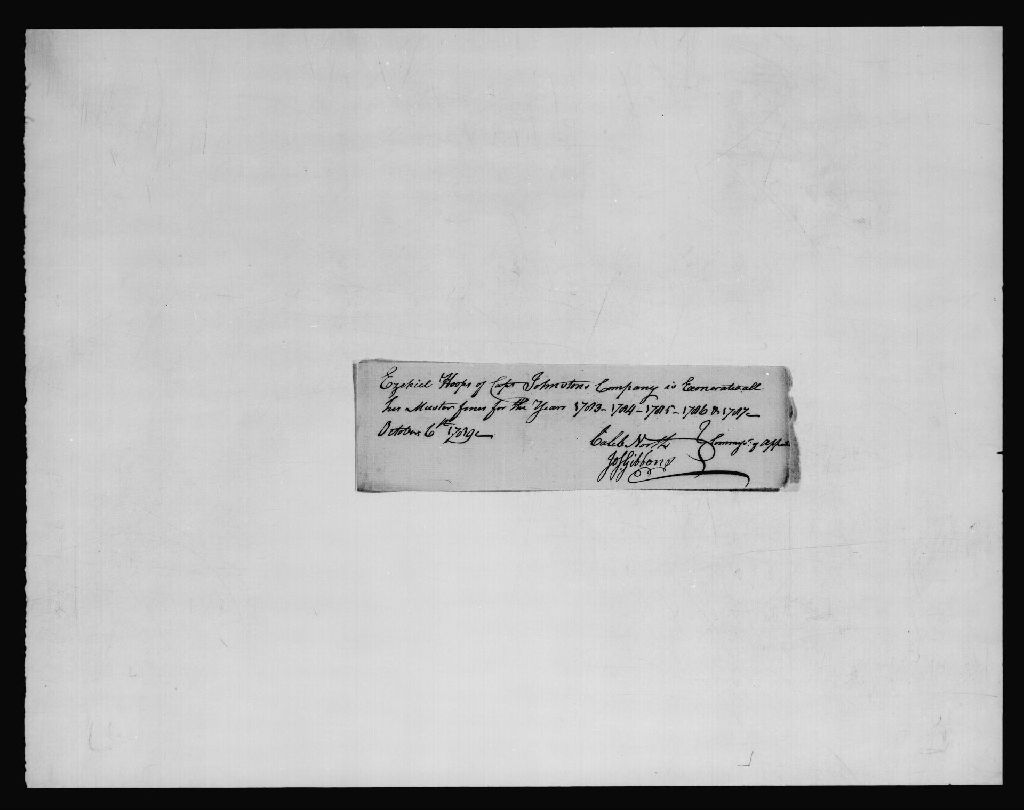 Ezekiel Hoops of Capt Johnstons Company is Exonerated all
his Muster fines for the Years 1783 - 1784 - 1785 - 1786 & 1787
October 6th 1789
Caleb North Commrs. of Appeal
Jos Gibbons